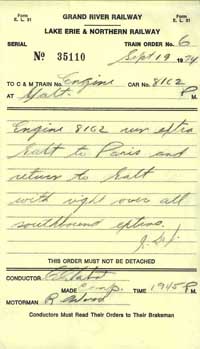 Form
E. L. 31
GRAND RIVER RAILWAY
Form
E. L. 31
LAKE ERIE & NORTHERN RAILWAY
SERIAL
TRAIN ORDER No. 6
No 35110
Sept 19 1974
TO C & M TRAIN No. Engine CAR No. 8162
AT Galt M.
Engine 8162 run extra
Galt to Paris and
return to Galt
with right over all
southbound extras.
THIS ORDER MUST NOT BE DETACHED
CONDUCTOR
MADE Comp. TIME 1945 M
MOTORMAN R.
Conductors Must Read Their Orders to Their Brakeman